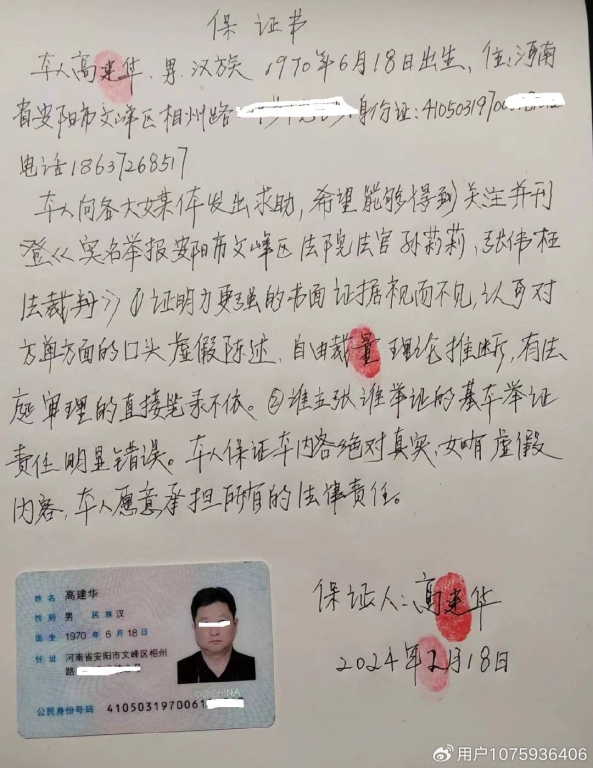 保证书
本人高建华.男.汉族 1970年6月18日出生,住:河南
省安阳市文峰区相州路 身份证:4105031970
电话18637268517
本人向各大媒体发出求助,希望能够得到关注并刊
登《实名举报安阳市文峰区法院法官孙莉莉,张伟枉
法裁判》①证明力更强的书面证据视而不见,认可对
方单方面的口头虚假陈述,自由裁量理论推断,有法
庭审理的直接笔录不依。②谁主张谁举证的基本举证
责任明显错误。本人保证本内容绝对真实,如有虚假
内容,本人愿意承担所有的法律责任。
保证人:高建华
2024年2月18日
姓名 高建华
性别 男 民族 汉
出生 1970 年 6 月 18 日
住址 河南省安阳市文峰区相州
路
公民身份号码 4105031970061
CHINA
用户1075936406